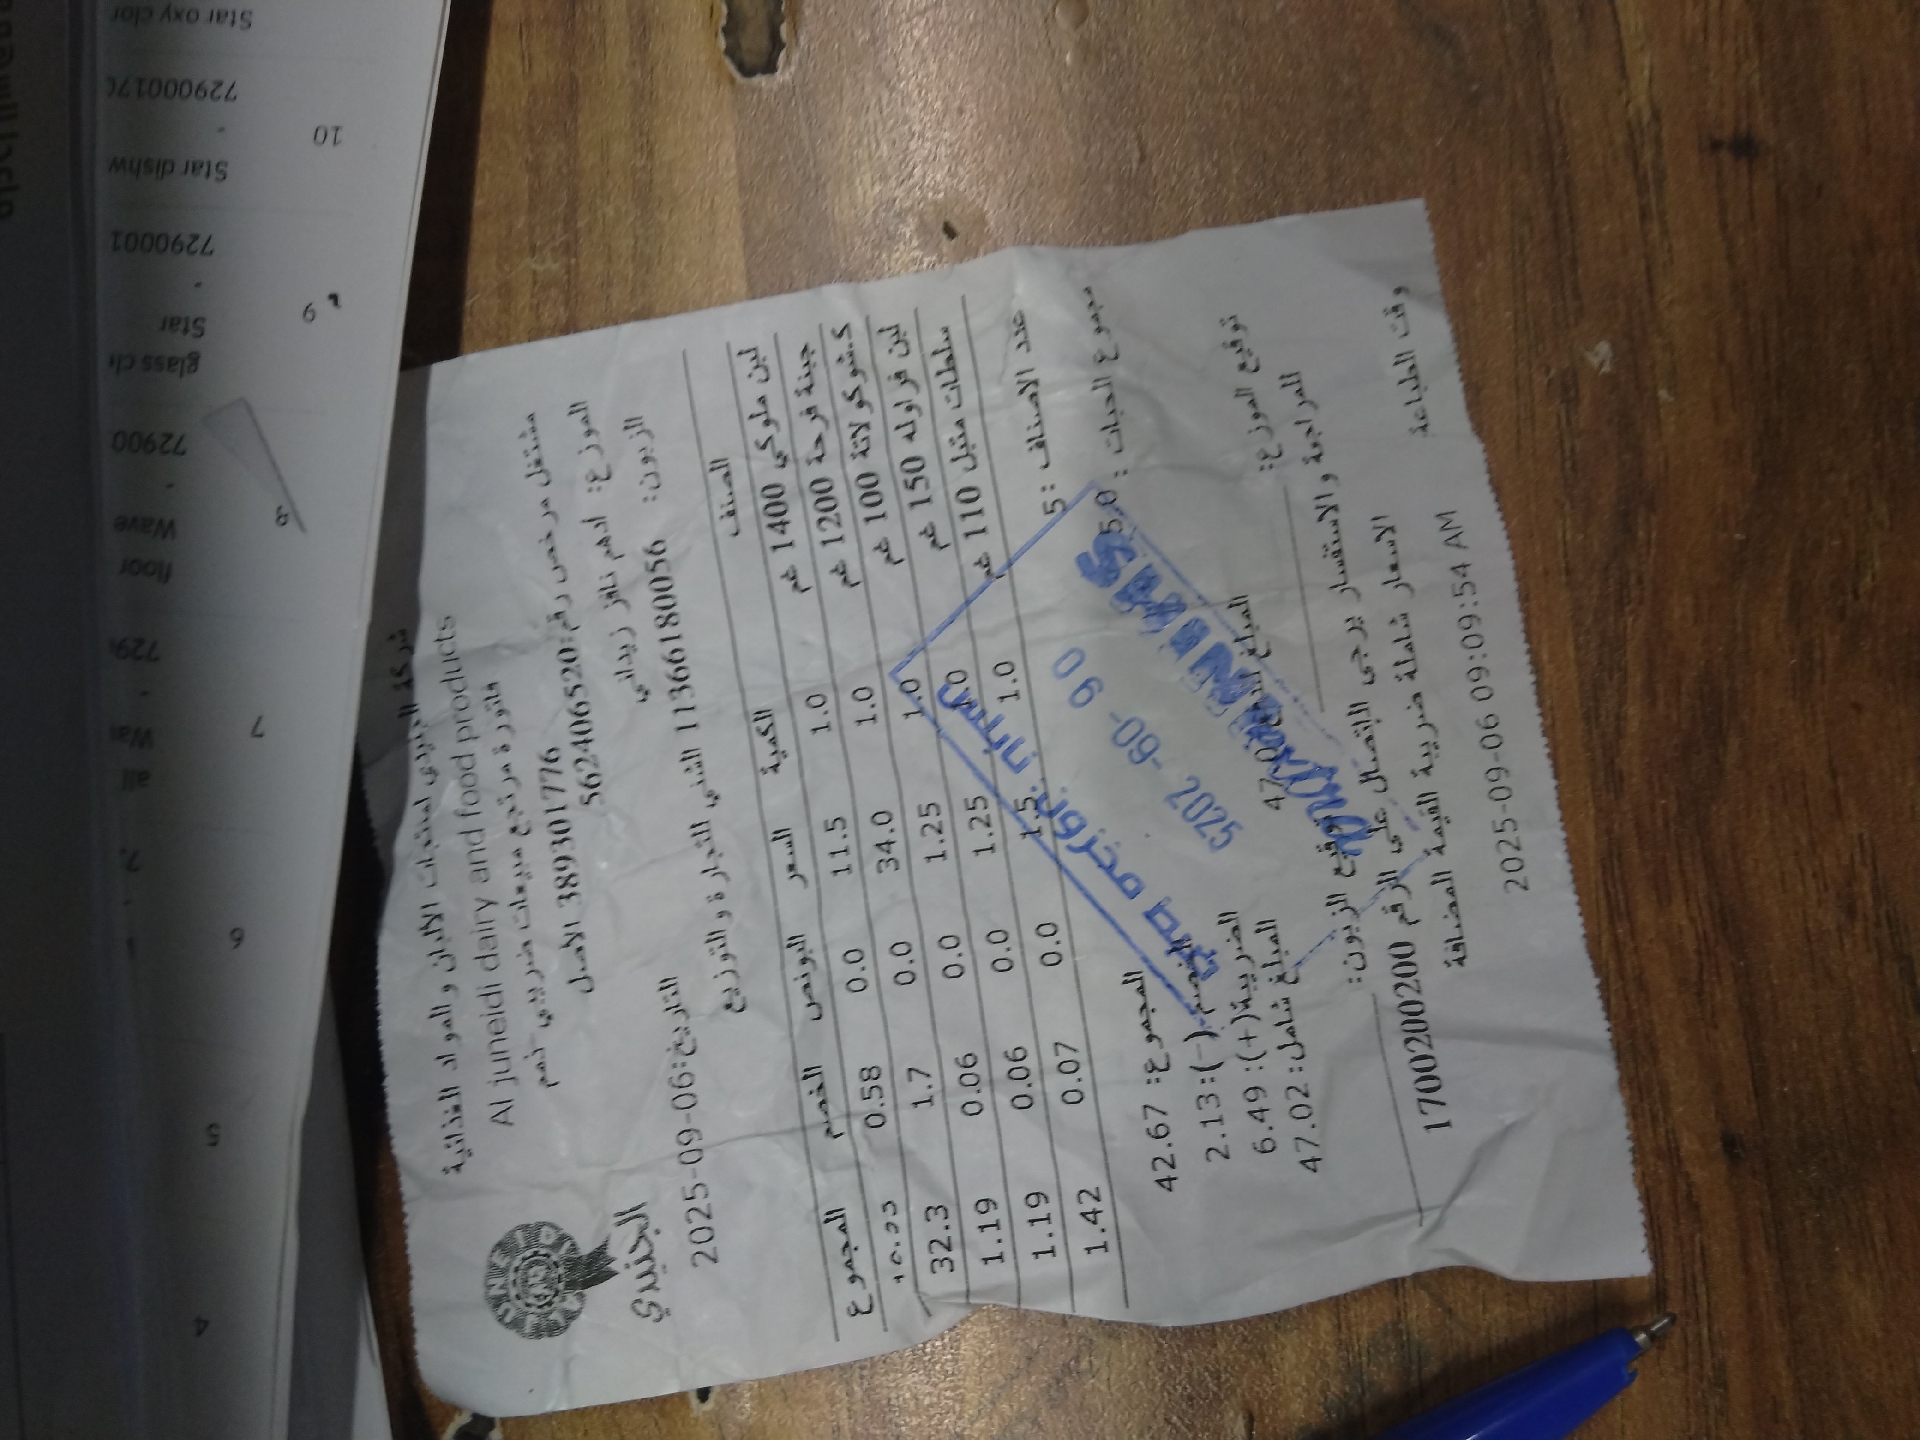 شركة الجنيدي لمنتجات الالبان والمواد الغذائية
Al juneidi dairy and food products
فاتورة مرتجع مبيعات ضريبي - خصم
مشتغل مرخص رقم:562406520
الموزع: ادهم نافز زيداني
389301776 الاصل
الجنيدي
التاريخ:2025-09-06
الزبون: 113661800056 الشني للتجارة والتوزيع
الصنف الكمية السعر البونص الخصم المجموع
لبن ملوكي 1400 غم 1.0 11.5 0.0 0.58
جبنة فرحة 1200 غم 1.0 34.0 0.0 1.7 32.3
كيشوكولاتة 100 غم 1.0 1.25 0.0 0.06 1.19
لبن فراوله 150 غم 1.0 1.25 0.0 0.06 1.19
سلطات متبل 110 غم 1.0 1.5 0.0 0.07 1.42
عدد الاصناف :5
مجموع الحبات :5.0
المجموع: 42.67
الخصم(-): 2.13
الضريبة(+): 6.49
المبلغ شامل: 47.02
توقيع الموزع:
توقيع الزبون:
للمراجعة والاستفسار يرجى الاتصال على الرقم 1700200200
الاسعار شاملة ضريبة القيمة المضافة
وقت الطباعة 2025-09-06 09:09:54 AM
SHINI
06 -09- 2025
ضبط مخزون نابلس
Star oxy clor
10
Star dishw
7290001
9
Star
glass cl
72900
8
Wave
floor
7
all
6
5
4